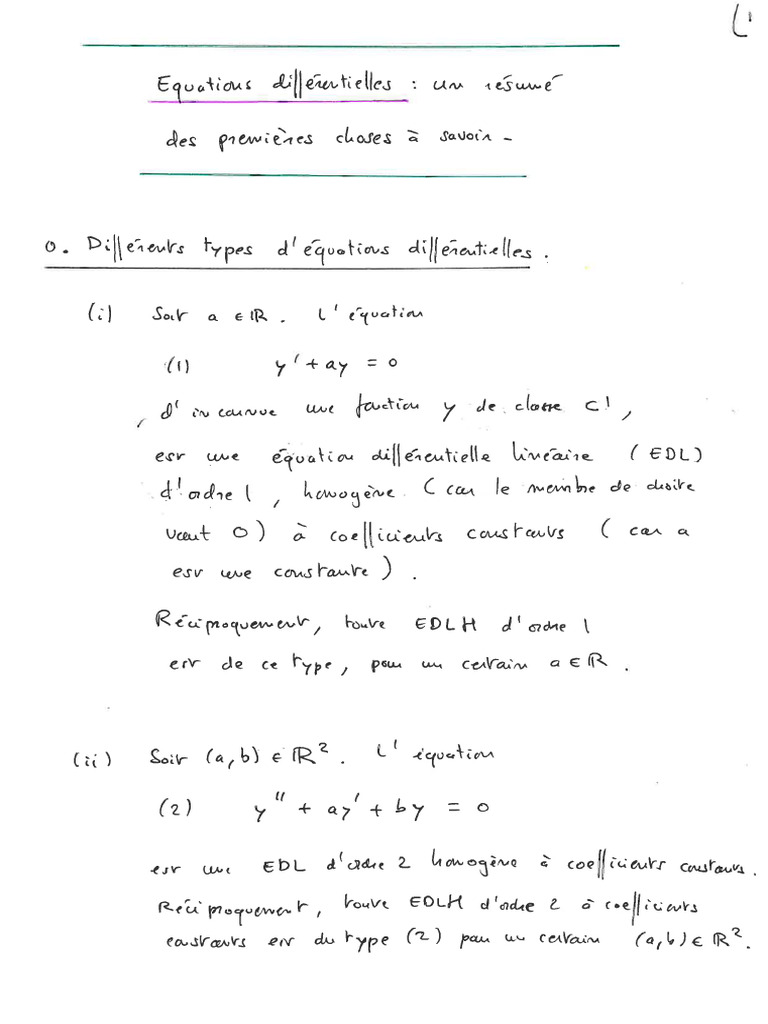 (1
Equations différentielles : un résumé
des premières choses à savoir -
0. Différents types d'équations différentielles.
(i) Soit a ∈ ℝ. L'équation
(1) y' + ay = 0
, d'inconnue une fonction y de classe C¹,
est une équation différentielle linéaire (EDL)
d'ordre 1, homogène (car le membre de droite
vaut 0) à coefficients constants (car a
est une constante).
Réciproquement, toute EDLH d'ordre 1
est de ce type, pour un certain a ∈ ℝ.
(ii) Soit (a,b) ∈ ℝ². L'équation
(2) y'' + ay' + by = 0
est une EDL d'ordre 2 homogène à coefficients constants.
Réciproquement, toute EDLH d'ordre 2 à coefficients
constants est du type (2) pour un certain (a,b) ∈ ℝ².